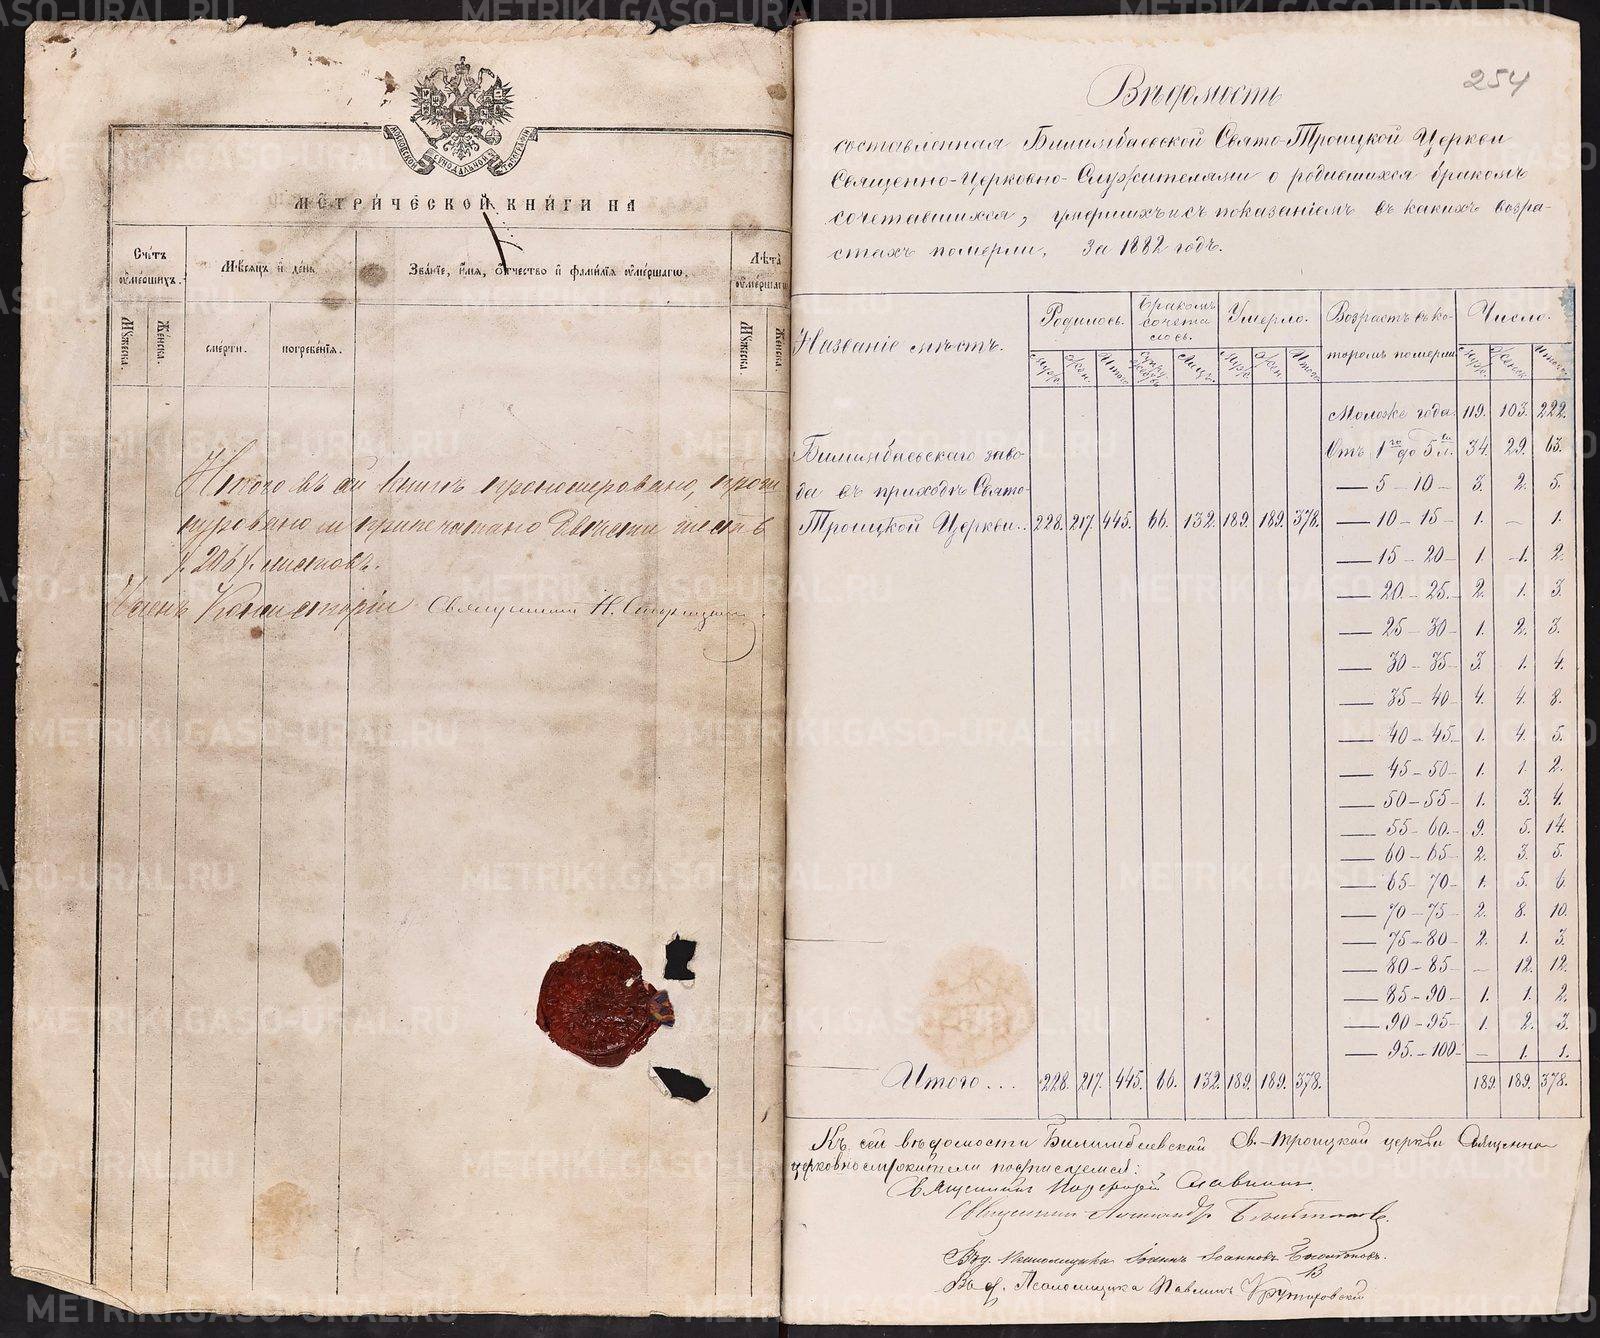 МОСКОВСКОЙ СѴНОДАЛЬНОЙ ТИПОГРАФІИ
МЕТРИЧЕСКОЙ КНИГИ НА
Счетъ умершихъ.
Мѣсяцъ и день
Званіе, имя, отчество и фамилія умершаго.
Лѣта умершаго
Мужеска.
Женска.
смерти.
погребенія.
Мужеска
Женска.
Итого въ сей книгѣ прономеровано, прошнуровано и припечатано двѣсти шесть
/. 206 /. листовъ.
Членъ Консисторіи Священникъ Н.
254
Вѣдомость
составленная Билимбаевской Свято-Троицкой Церкви
Священно-Церковно-Служителями о родившихся бракомъ
сочетавшихся, умершихъ и съ показаніемъ въ какихъ возра-
стахъ померли, за 1882 годъ.
Названіе мѣстъ.
Родилось.
Бракомъ сочеталось.
Умерло.
Возрастъ въ ко-
торомъ померли
Число.
Муж. Жен. Итого Супружествъ Лицъ. Муж. Жен. Итого. Муж. Женск. Итого.
Моложе года. 119. 103. 222.
Билимбаевскаго заво-
Отъ 1го до 5ти л. 34. 29. 63.
да въ приходѣ Свято-
— 5 – 10 – 3. 2. 5.
Троицкой Церкви.. 228. 217. 445. 66. 132. 189. 189. 378. — 10 – 15 – 1. – 1.
— 15 – 20 – 1. 1. 2.
— 20 – 25. – 2. 1. 3.
— 25 – 30 – 1. 2. 3.
— 30 – 35 – 3. 1. 4.
— 35 – 40 – 4. 4. 8.
— 40 – 45. – 1. 4. 5.
— 45 – 50 – 1. 1. 2.
— 50 – 55 – 1. 3. 4.
— 55 – 60. – 9. 5. 14.
— 60 – 65 – 2. 3. 5.
— 65 – 70 – 1. 5. 6.
— 70 – 75 – 2. 8. 10.
— 75 – 80 – 2. 1. 3.
— 80 – 85 – – 12. 12.
— 85 – 90 – 1. 1. 2.
— 90 – 95 – 1. 2. 3.
— 95. – 100 – – 1. 1.
Итого... 228. 217. 445. 66. 132. 189. 189. 378. 189. 189. 378.
Къ сей вѣдомости Билимбаевской Св.-Троицкой церкви Священно-
церковнослужители подписуемся:
Священникъ Порфирій Славнинъ.
Священникъ Александръ
И. д. Псаломщика Іоаннъ Іоанновъ
И. д. Псаломщика Павлинъ
METRIKI.GASO-URAL.RU